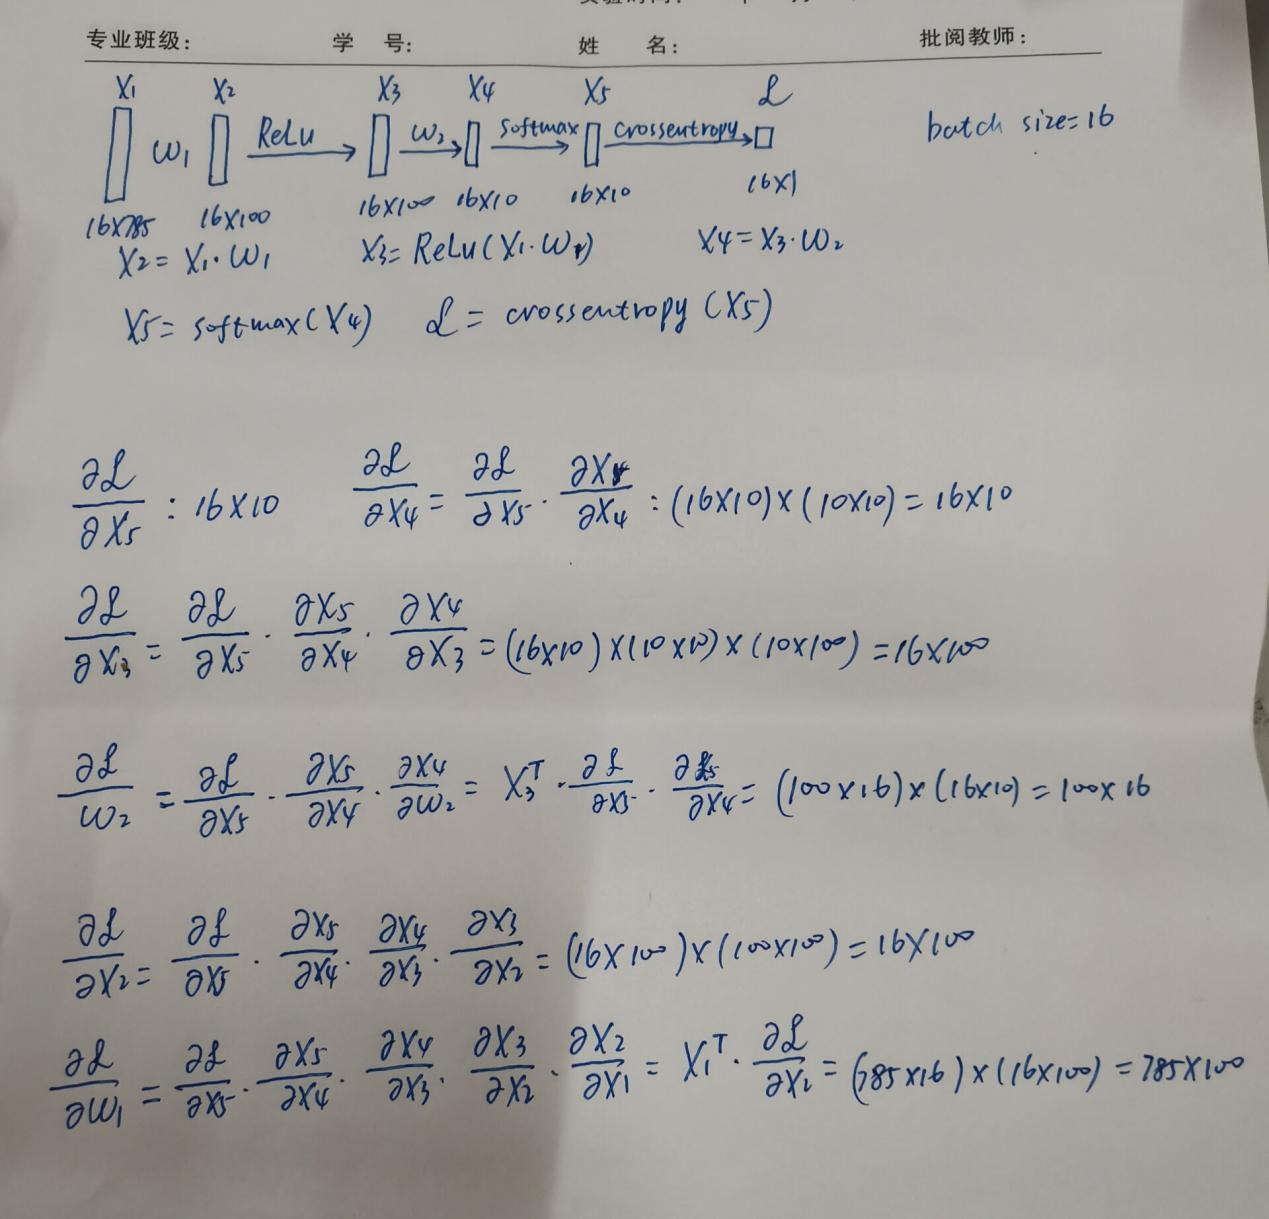 专业班级: 学 号: 姓 名: 批阅教师:
X1 X2 X3 X4 X5 ℒ
W1 ReLu W2 softmax crossentropy batch size=16
16×785 16×100 16×100 16×10 16×10 16×1
X2 = X1·W1 X3 = ReLu(X1·W1) X4 = X3·W2
X5 = softmax(X4) ℒ = crossentropy (X5)
∂ℒ/∂X5 : 16×10 ∂ℒ/∂X4 = ∂ℒ/∂X5 · ∂X5/∂X4 : (16×10)×(10×10) = 16×10
∂ℒ/∂X3 = ∂ℒ/∂X5 · ∂X5/∂X4 · ∂X4/∂X3 = (16×10)×(10×10)×(10×100) = 16×100
∂ℒ/W2 = ∂ℒ/∂X5 · ∂X5/∂X4 · ∂X4/∂W2 = X3^T · ∂ℒ/∂X5 · ∂X5/∂X4 = (100×16)×(16×10) = 100×16
∂ℒ/∂X2 = ∂ℒ/∂X5 · ∂X5/∂X4 · ∂X4/∂X3 · ∂X3/∂X2 = (16×100)×(100×100) = 16×100
∂ℒ/∂W1 = ∂ℒ/∂X5 · ∂X5/∂X4 · ∂X4/∂X3 · ∂X3/∂X2 · ∂X2/∂X1 = X1^T · ∂ℒ/∂X2 = (785×16)×(16×100) = 785×100